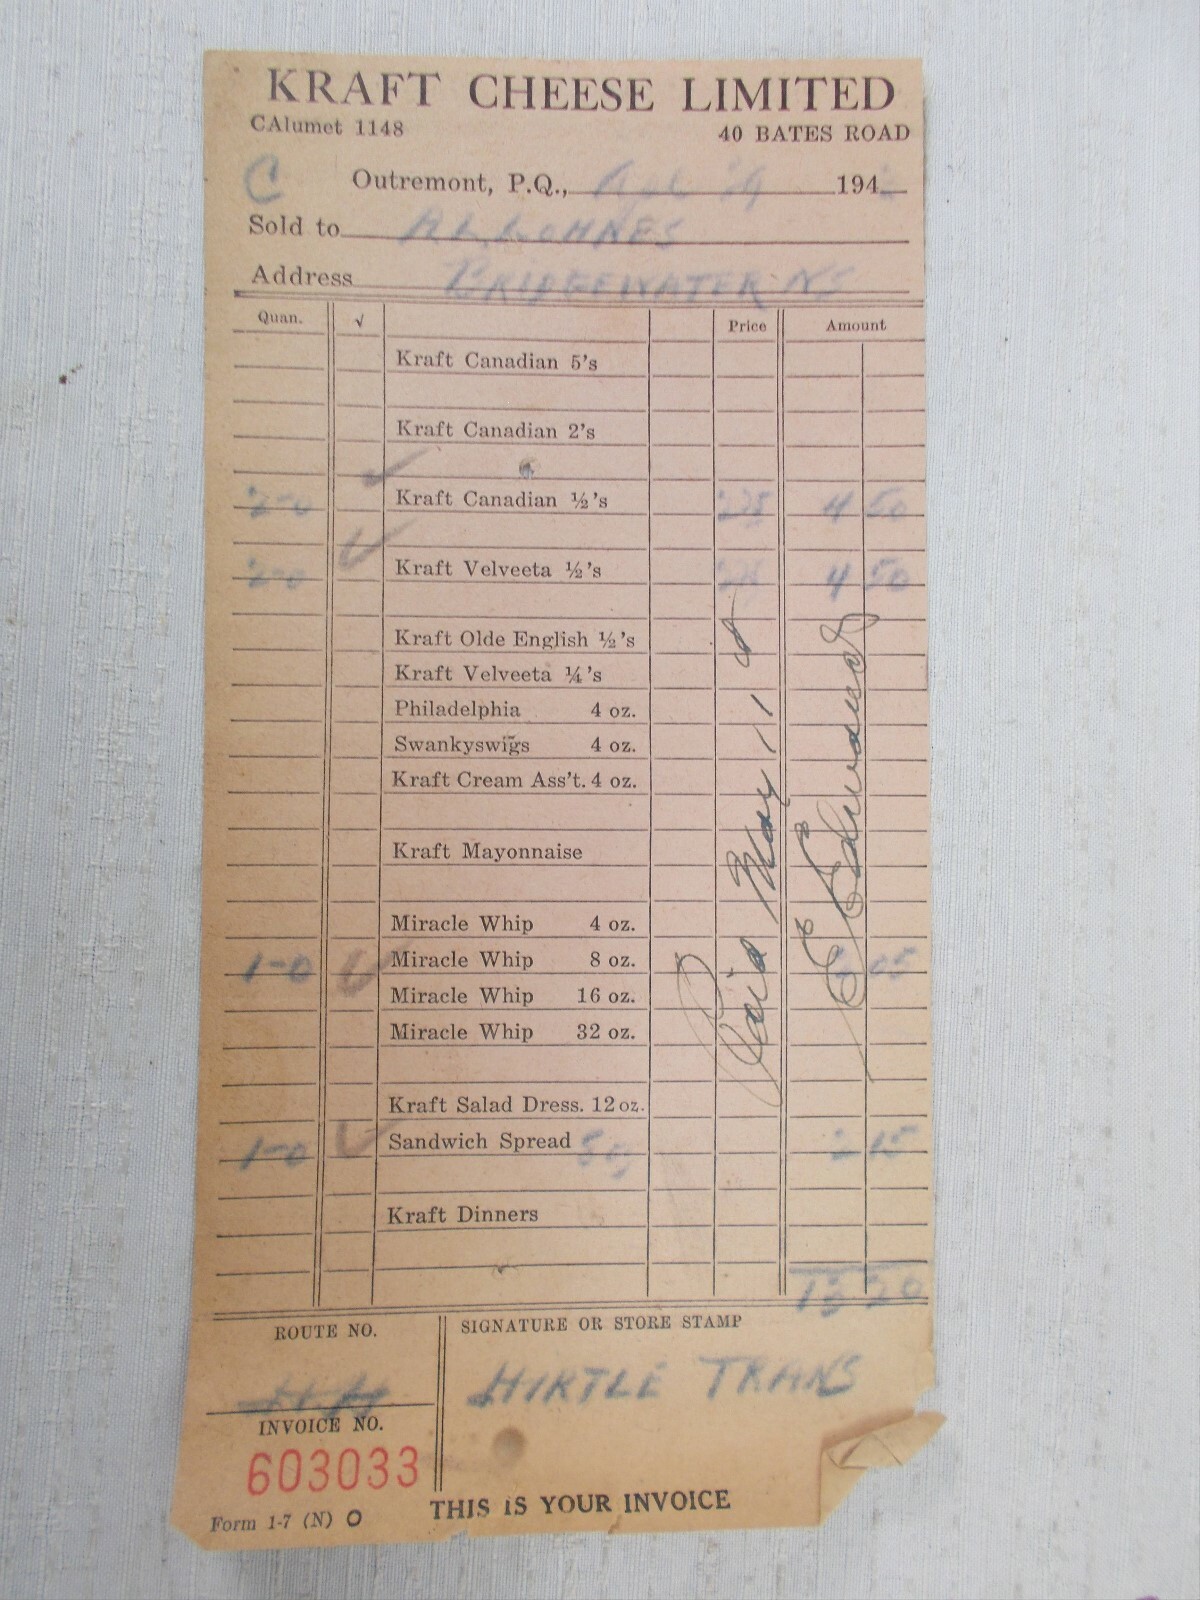 KRAFT CHEESE LIMITED
CAlumet 1148 40 BATES ROAD
C Outremont, P.Q., 194
Sold to
Address BRIDGEWATER NS
Quan. √ Price Amount
Kraft Canadian 5's
Kraft Canadian 2's
2-0 ✓ Kraft Canadian ½'s 225 4 50
2-0 ✓ Kraft Velveeta ½'s 225 4 50
Kraft Olde English ½'s
Kraft Velveeta ¼'s
Philadelphia 4 oz.
Swankyswigs 4 oz.
Kraft Cream Ass't. 4 oz.
Kraft Mayonnaise
Miracle Whip 4 oz.
1-0 ✓ Miracle Whip 8 oz. 05
Miracle Whip 16 oz.
Miracle Whip 32 oz.
Kraft Salad Dress. 12 oz.
1-0 ✓ Sandwich Spread 2 15
Kraft Dinners
13 20
Paid May 11
Edwards
ROUTE NO. SIGNATURE OR STORE STAMP
HIRTLE TRANS
INVOICE NO.
603033
THIS IS YOUR INVOICE
Form 1-7 (N) O